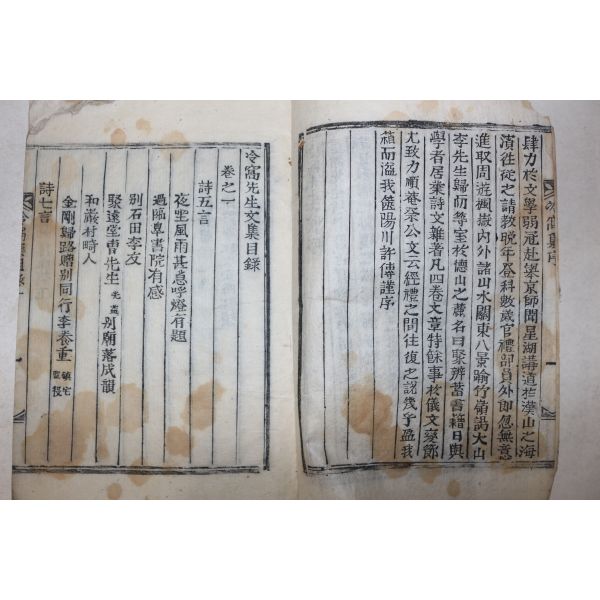 肆力於文學弱冠赴擧京師聞星湖講道於漢山之海
濱往從之請教晩年登科數歲官禮部員外郎忽無意
進取周遊楓嶽内外諸山水關東八景踰竹嶺謁大山
李先生歸而等室於德山之麓名曰聚辨蓄書籍日與
學者居業詩文雜著凡四卷文章特餘事於儀文變節
尤致力順菴榮公文云經禮之間往復之説幾乎盈我
箱而溢我篋陽川許傳謹序
冷窩集序
冷窩先生文集目錄
卷之一
詩五言
夜坐風雨甚急呼燈有題
過臨皐書院有感
別石田李友
聚遠堂曺先生光益別廟落成韻
和巖村畸人
金剛歸路贈別同行李養重
詩七言